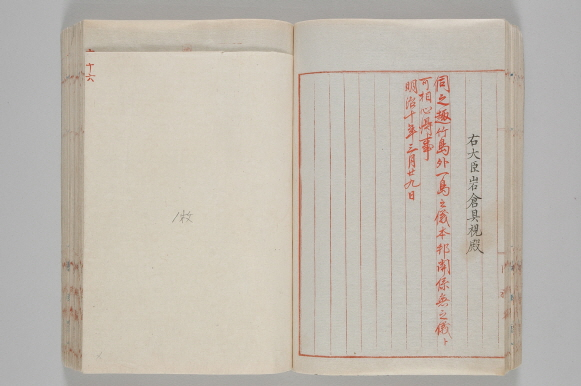 右大臣岩倉具視殿
伺之趣竹島外一島之儀本邦関係無之儀ト
可相心得事
明治十年三月廿九日
十六
1枚